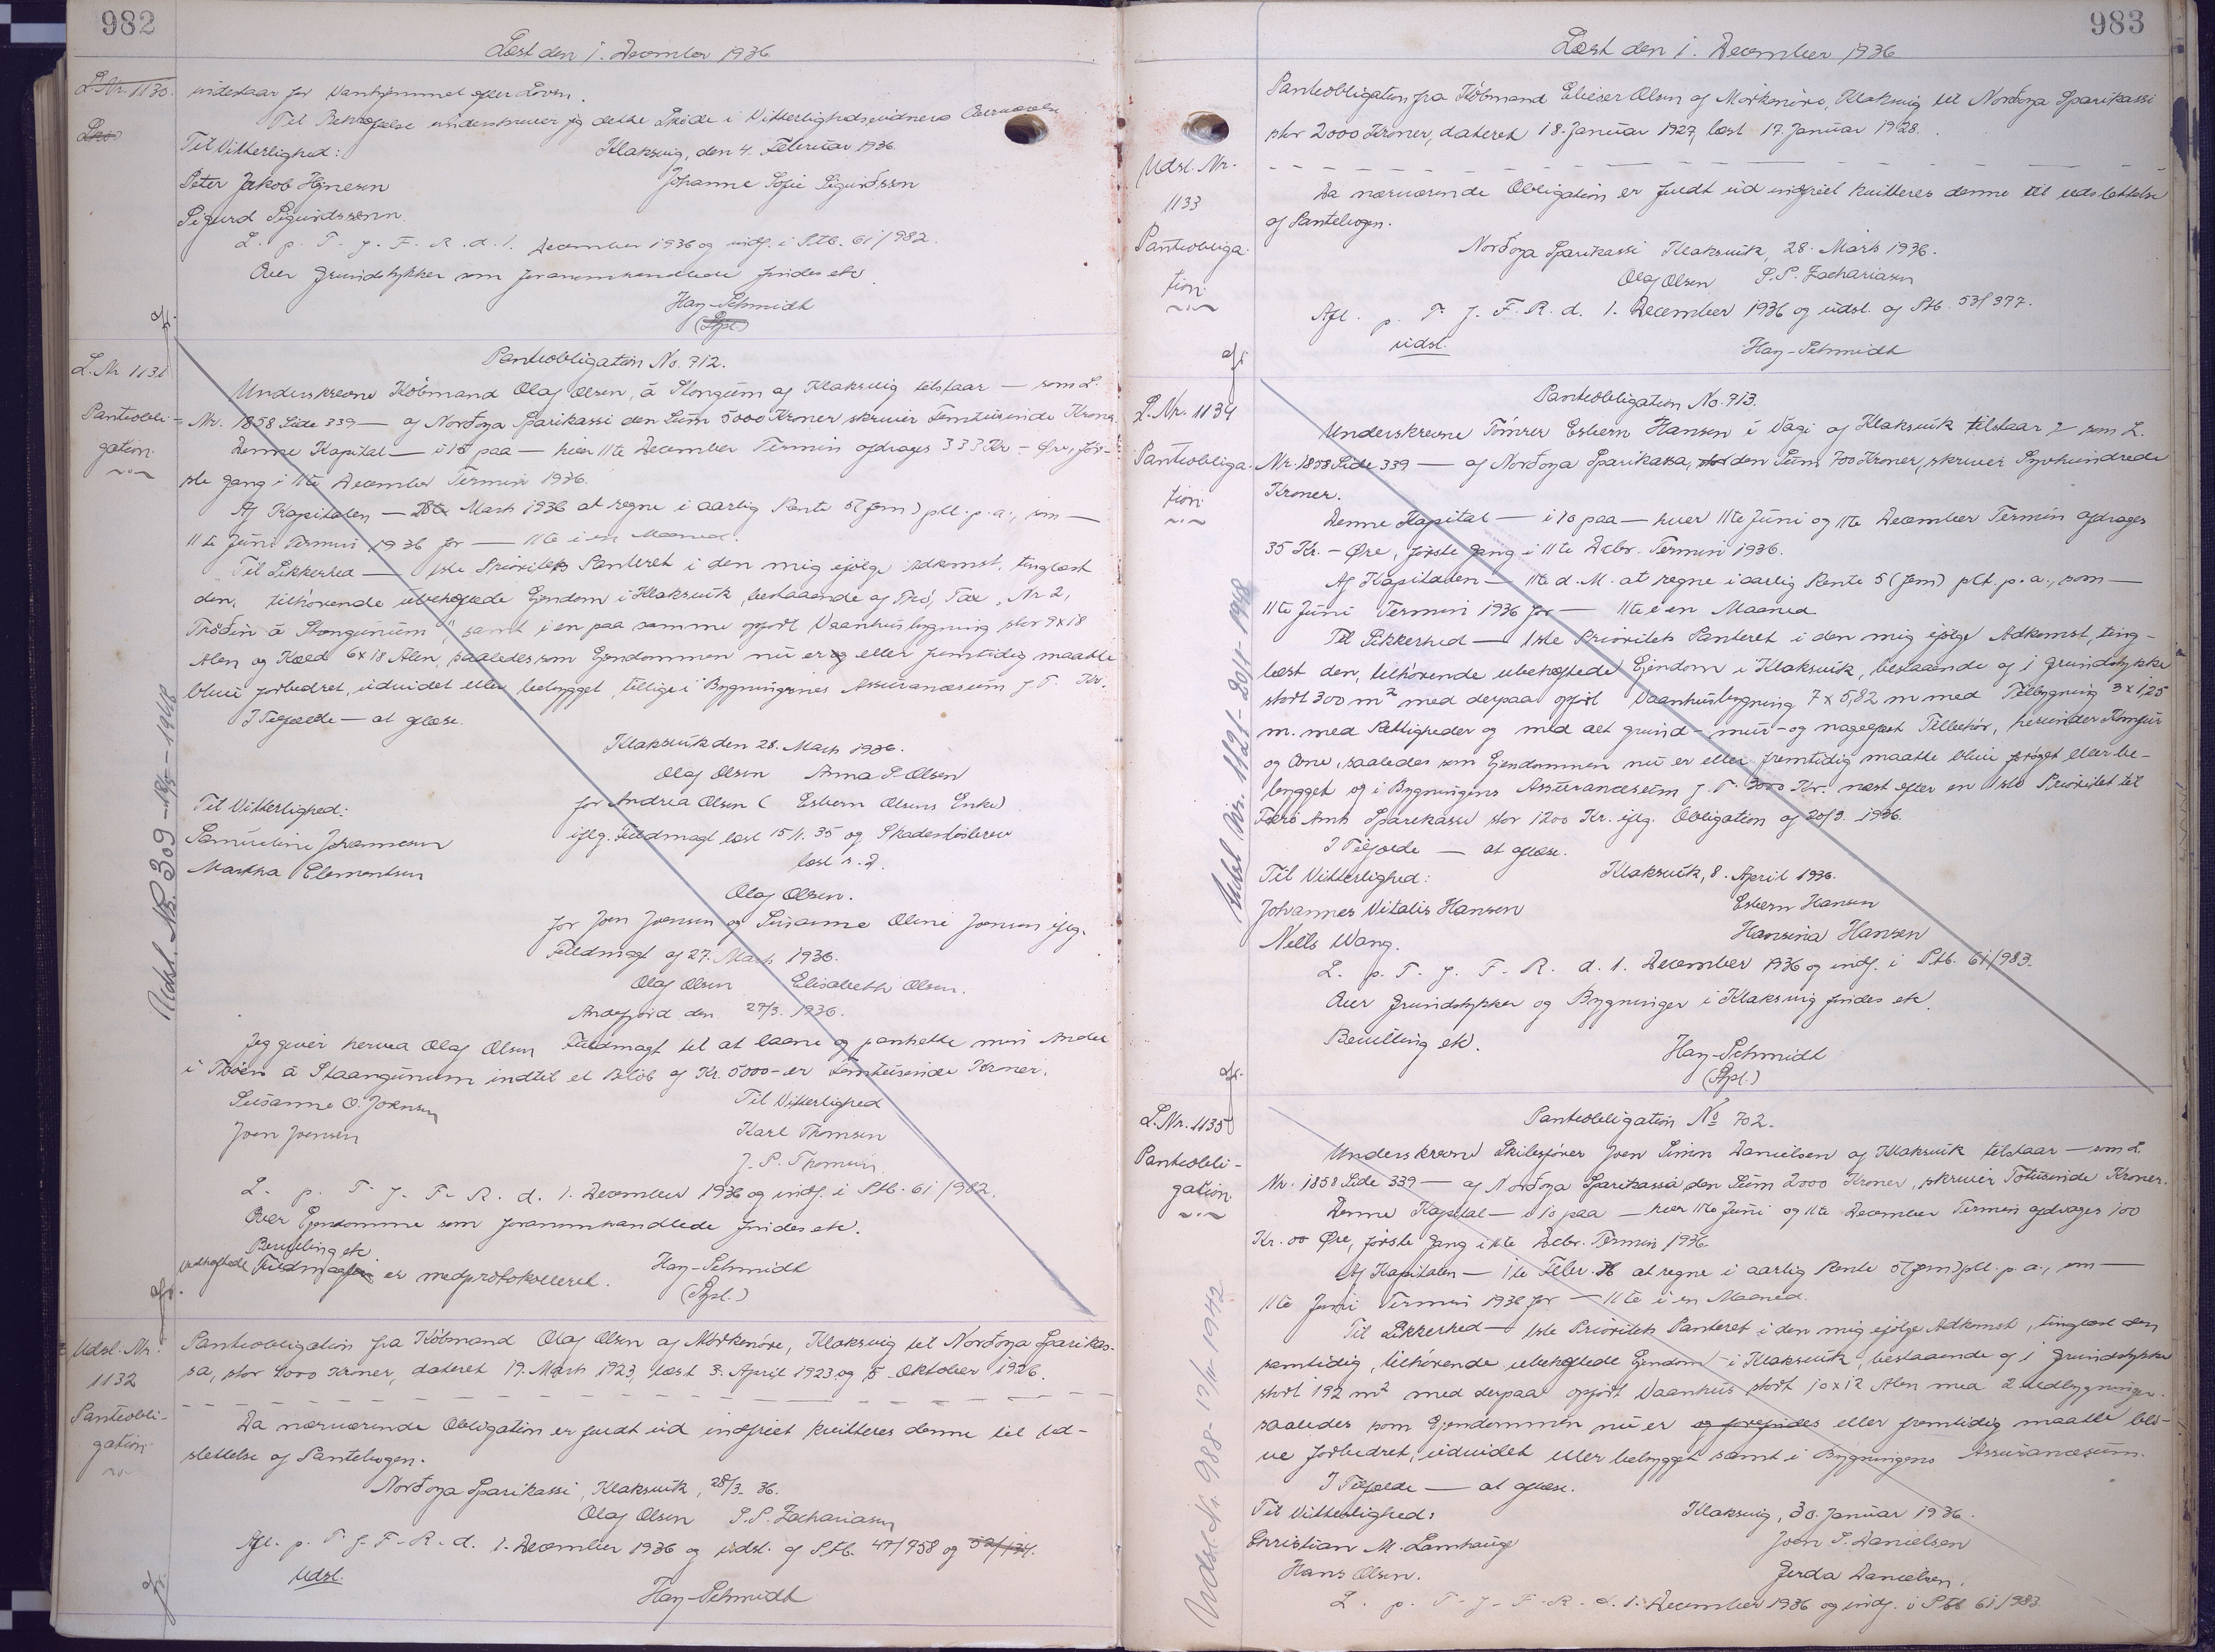 982
Læst den 1. December 1936
L. Nr. 1130.
indestaar for Vanhjemmel efter Loven.
Til Bekræftelse underskriver jeg dette Skøde i Vitterlighedsvidners Overværelse
Til Vitterlighed:
Klaksvig, den 4. Februar 1936.
Peter Jakob Højnesen
Johanne Sofie Sigurdsson
Sigurd Sigurdssonn.
L. p. T. f. F. R. d. 1. December 1936 og indf. i Ptb. 61/982.
Over Grundstykker som foranommeldte findes etc.
Hay-Schmidt
(Spl.)
L. Nr 1131
Panteobli-
gation
Panteobligation No. 712.
Underskrevne Købmand Olaf Olsen, á Stongum af Klaksvig tilstaar — som L.
Nr. 1858 Side 339 — af Norðoya Sparikassi den Sum 5000 Kroner skriver Femtusinde Kroner.
Denne Kapital — i 10 paa — hver 11te December Termin afdrages 333 Kr - Øre, før-
ste Gang i 11te December Termin 1936.
Af Kapitalen — 28te Marts 1936 at regne i aarlig Rente 5 (fem) pct. p. a., som —
11te Juni Termin 1936 for — 11te i en Maaned.
Til Sikkerhed — 1ste Prioritets Panteret i den mig ifølge Adkomst, tinglæst
den, tilhørende ubehæftede Ejendom i Klaksvik, bestaaende af Trø, Nr 2,
Trøðin á Stongunum", samt i en paa samme opført Vaanhusbygning stor 9x18
Alen og Kæld 6x18 Alen, saaledes som Ejendommen nu er og eller fremtidig maatte
blive forbedret, udvidet eller bebygget, tillige i Bygningernes Assurancesum f. T. Kr.
I Tilfælde — at glose.
Klaksvik den 28. Marts 1936.
Olaf Olsen Anna S. Olsen
Til Vitterlighed:
for Andrea Olsen ( Esbern Olsens Enke)
Samueline Johannesen
iflg. Fuldmagt læst 15/1. 35 og Skadesløsbrev
læst s. D.
Martha Clementsen
Olaf Olsen.
for Joen Joensen og Susanne Oline Joensen iflg.
Fuldmagt af 27. Marts 1936.
Olaf Olsen Elisabeth Olsen.
Andefjord den 27/3. 1936.
Jeg giver herved Olaf Olsen Fuldmagt til at laane og pantsætte min Andel
i Trøin á Staangunum indtil et Beløb af Kr. 5000 - er Femtusinde Kroner.
Susanne O. Joensen
Til Vitterlighed
Joen Joensen
Karl Thomsen
J. P. Thomsen
L. p. T. f. F. R. d. 1. December 1936 og indf. i Ptb. 61/982.
Over Ejendomme som foranommhandlede findes etc.
Bevilling etc.
vedhæftede Fuldmagter er medprotokolleret.
Hay-Schmidt
(Spl.)
Udsl. Nr. 309 - 1948
Udsl. Nr.
1132
Panteobli-
gation
Panteobligation fra Købmand Olaf Olsen af Mørkenøre, Klaksvig til Norðoya Sparikas-
sa, stor 4000 Kroner, dateret 19. Marts 1923, læst 3. April 1923 og 5. Oktober 1926.
Da nærværende Obligation er fuldt ud indfriet kvitteres denne til Ud-
slettelse af Pantebogen.
Norðoya Sparikassi, Klaksvik, 28/3. 36.
Olaf Olsen S. P. Zachariasen
Afl. p. T. f. F. R. d. 1. December 1936 og udsl. af Ptb. 47/958 og 52/134.
Udsl.
Hay-Schmidt
983
Læst den 1. December 1936
Udsl. Nr.
1133
Panteobliga-
tion
Panteobligation fra Købmand Elieser Olsen af Mørkenøre, Klaksvig til Norðoya Sparikassi
stor 2000 Kroner, dateret 18. Januar 1927, læst 17. Januar 1928.
Da nærværende Obligation er fuldt ud indfriet kvitteres denne til udslettelse
af Pantebogen.
Norðoya Sparikassi Klaksvik, 28. Marts 1936.
Olaf Olsen S. P. Zachariasen
Afl. p. T. f. F. R. d. 1. December 1936 og udsl. af Ptb. 53/377.
Udsl.
Hay-Schmidt
L. Nr. 1134
Panteobliga-
tion
Panteobligation No. 713.
Underskrevne Tømrer Esbern Hansen í Vági af Klaksvik tilstaar — som L.
Nr. 1858 Side 339 — af Norðoya Sparikassa, den Sum 700 Kroner, skriver Syvhundrede
Kroner.
Denne Kapital — i 10 paa — hver 11te Juni og 11te December Termin afdrages
35 Kr. - Øre, første Gang i 11te Decbr. Termin 1936.
Af Kapitalen — 11te d. M. at regne i aarlig Rente 5 (fem) pct. p. a., som —
11te Juni Termin 1936 for — 11te i en Maaned
Til Sikkerhed — 1ste Prioritets Panteret i den mig ifølge Adkomst, ting-
læst den, tilhørende ubehæftede Ejendom i Klaksvik, bestaaende af 1 Grundstykke
stort 300 m² med derpaa opført Vaanhusbygning 7 x 5,82 m med Tilbygning 3 x 1,25
m. med Rettigheder og med alt grund- mur- og nagelfast Tilbehør, herunder Komfur
og Ovne, saaledes som Ejendommen nu er eller fremtidig maatte blive forøget eller be-
bygget og i Bygningens Assurancesum f. T. 3000 Kr. næst efter en 1ste Prioritet til
Færø Amts Sparekasse stor 1200 Kr. iflg. Obligation af 20/3. 1936.
I Tilfælde — at glose.
Til Vitterlighed:
Klaksvik, 8. April 1936.
Johannes Vitalis Hansen
Esbern Hansen
Niells Wang.
Hansina Hansen
L. p. T. f. F. R. d. 1. December 1936 og indf. i Ptb. 61/983.
Over Grundstykker og Bygninger i Klaksvig findes etc.
Bevilling etc.
Hay-Schmidt
(Spl.)
Udsl. Nr. 1191 - 20/8 - 1948
L. Nr. 1135
Panteobli-
gation
Panteobligation No 702.
Underskrevne Skibsfører Joen Simin Danielsen af Klaksvik tilstaar — som L.
Nr. 1858 Side 339 — af Norðoya Sparikassa den Sum 2000 Kroner, skriver Totusinde Kroner.
Denne Kapital — i 10 paa — hver 11te Juni og 11te December Termin afdrages 100
Kr. 00 Øre, første Gang i 11te Decbr. Termin 1936.
Af Kapitalen — 1te Febr. 36 at regne i aarlig Rente 5 (fem) pct. p. a., som —
11te Juni Termin 1936 for — 11te i en Maaned.
Til Sikkerhed — 1ste Prioritets Panteret i den mig ifølge Adkomst, tinglæst den
samtidig, tilhørende ubehæftede Ejendom i Klaksvik, bestaaende af 1 Grundstykke
stort 192 m² med derpaa opført Vaanhus stort 10x12 Alen med 2 Udbygninger.
saaledes som Ejendommen nu er og forefindes eller fremtidig maatte bli-
ve forbedret, udvidet eller bebygget samt i Bygningens Assurancesum.
I Tilfælde — at glose.
Til Vitterlighed:
Klaksvig, 30. Januar 1936.
Christian M. Lamhauge
Joen S. Danielsen
Hans Olsen.
Gerda Danielsen.
L. p. T. f. F. R. d. 1. December 1936 og indf. i Ptb. 61/983.
Udsl. Nr. 988 - 12/11 1942